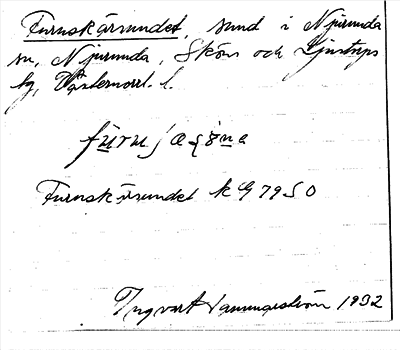 Furuskärsundet, sund i Njurunda
sn, Njurunda, Sköns och Ljustorps
tg, Västernorrl. l.
Furuskärsundet k G 7950
Ingvart Vannmgström 1932